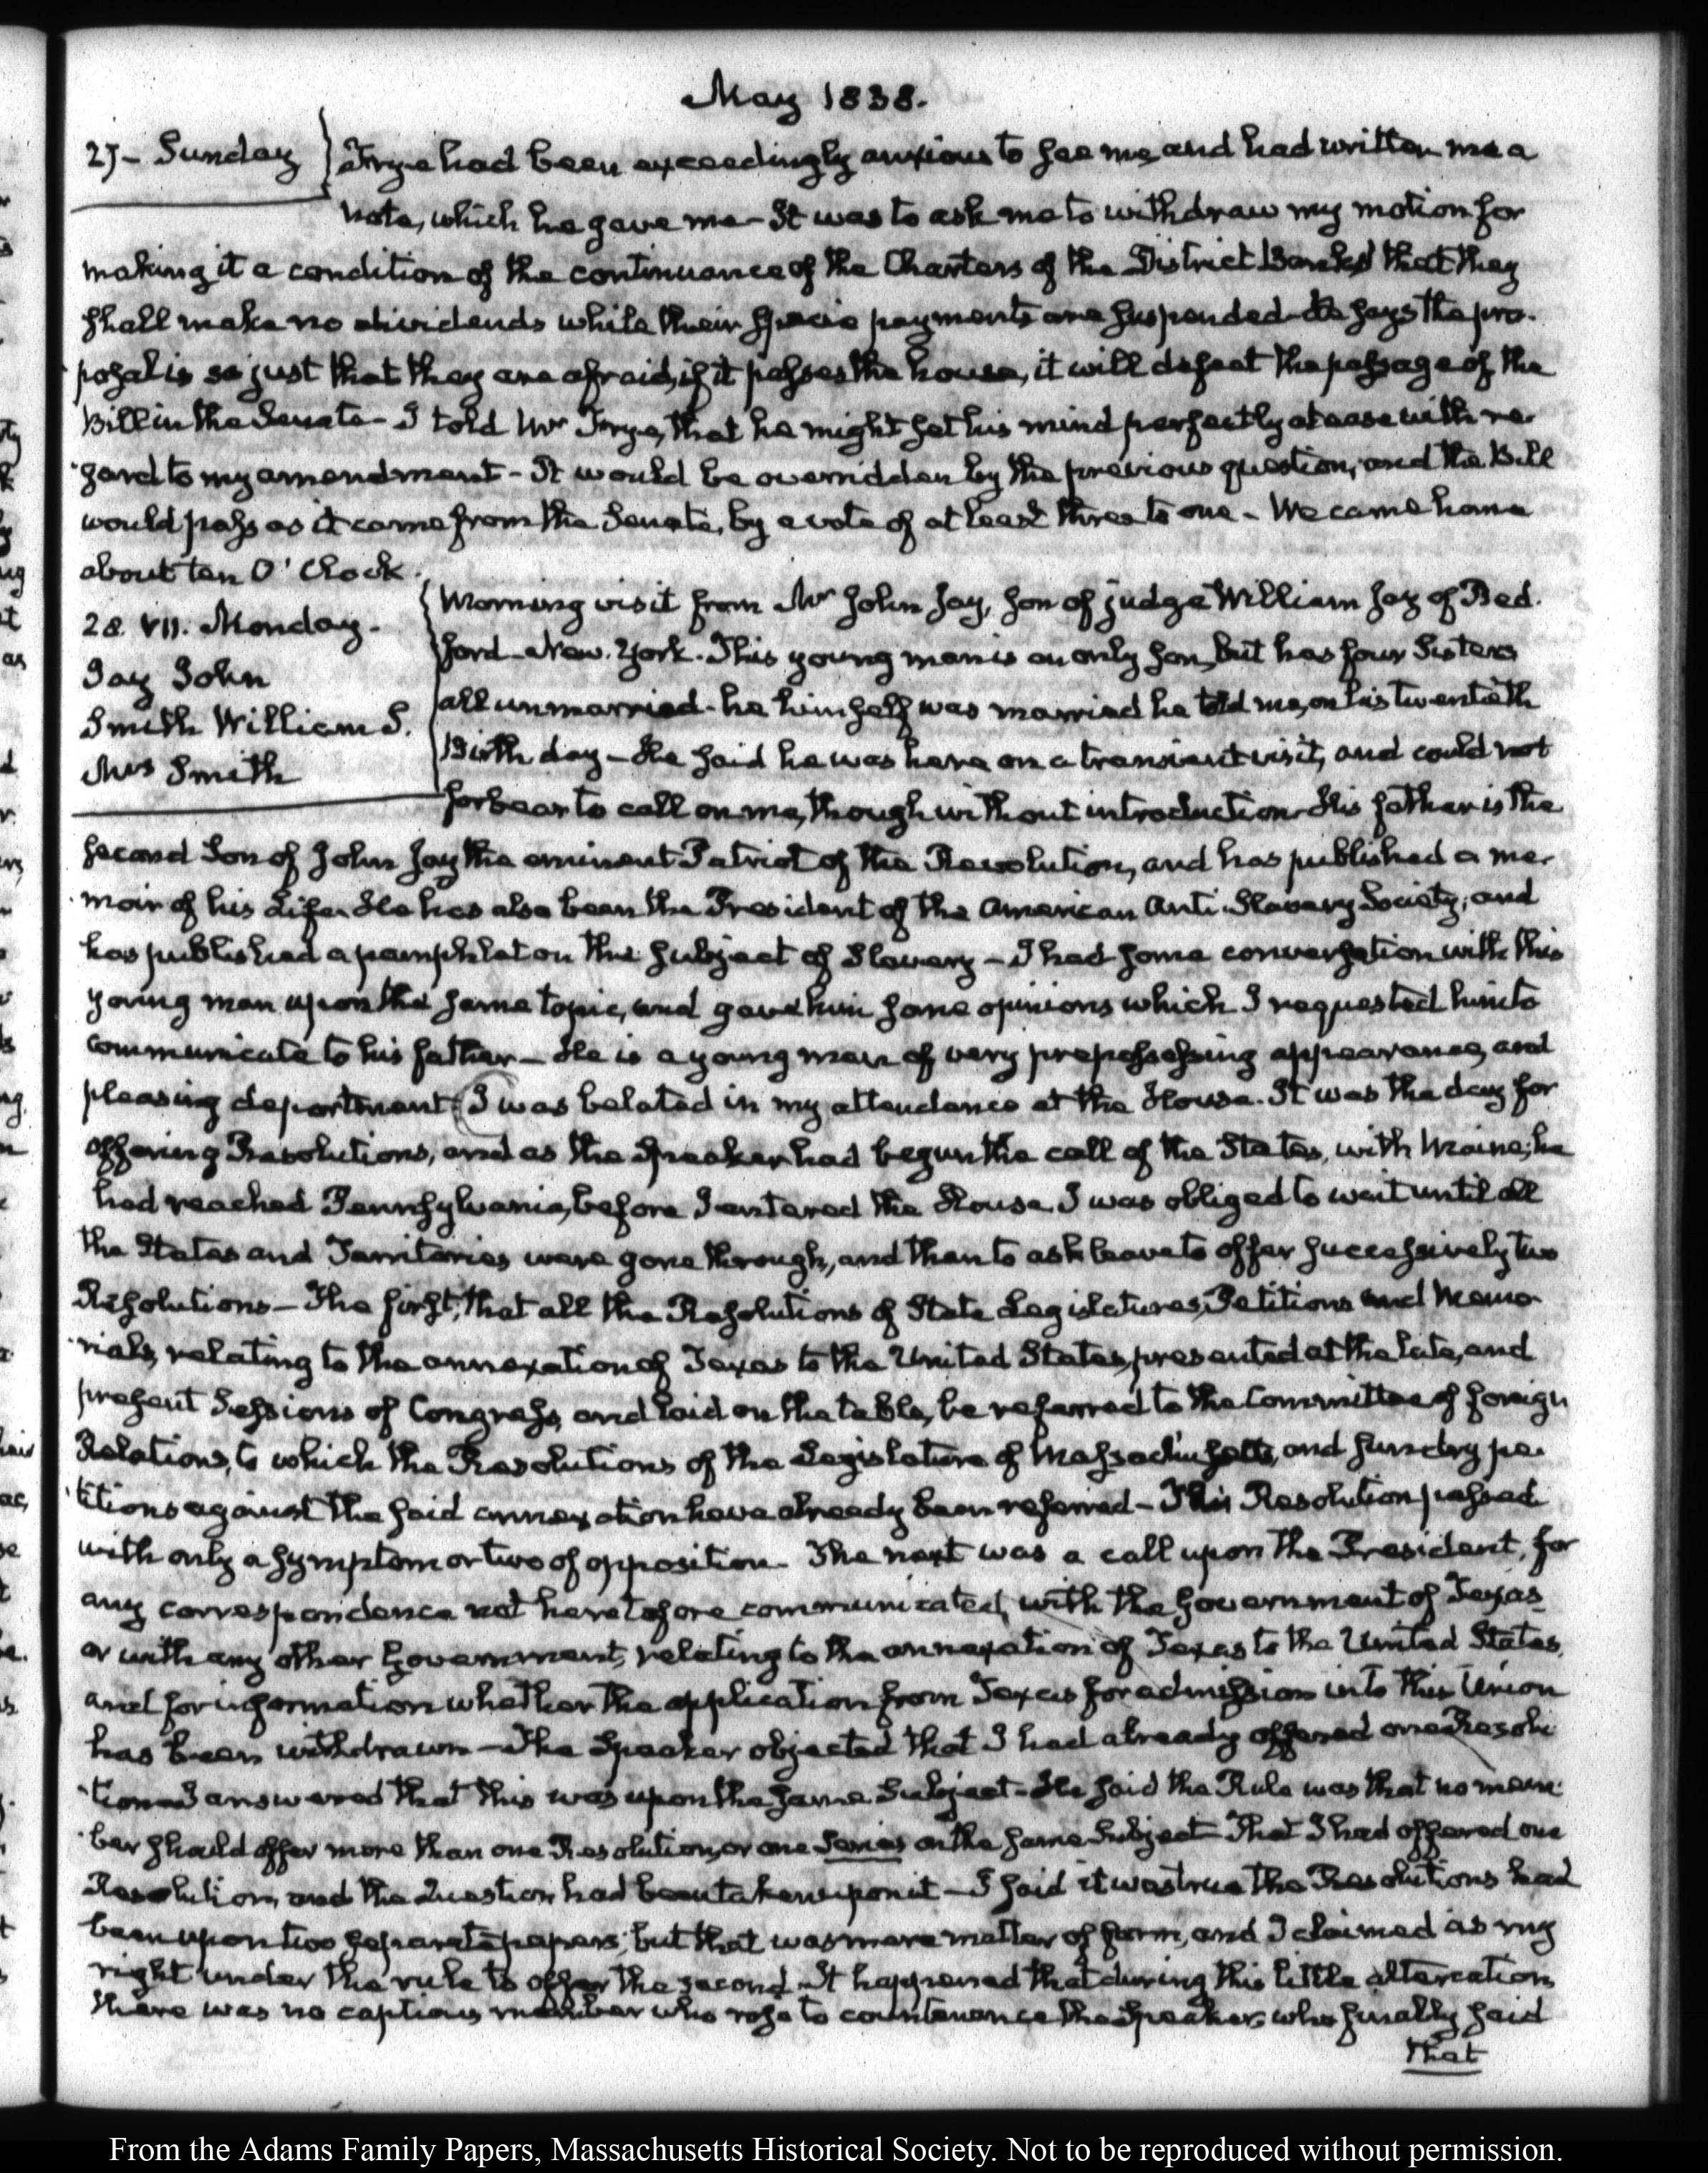 May 1838.
27 - Sunday
Frye had been exceedingly anxious to see me, and had written me a
note, which he gave me - It was to ask me to withdraw my motion for
making it a condition of the continuance of the Charters of the District Banks, that they
shall make no dividends while their specie payments are suspended - He says the pro-
posal is so just that they are afraid, if it passes the house, it will defeat the passage of the
Bill in the Senate - I told Mr Frye, that he might set his mind perfectly at ease with re-
gard to my amendment - It would be overridden by the previous question, and the Bill
would pass as it came from the Senate, by a vote of at least three to one - We came home
about ten O' Clock.
28. VII. Monday.
Jay John
Smith William S.
Mrs Smith
Morning visit from Mr John Jay, Son of judge William Jay of Bed-
ford - New-York. This young man is an only son, but has four Sisters
all unmarried - he himself was married he told me, on his twentieth
Birth day - He said he was here on a transient visit, and could not
forbear to call on me, though without introduction - His father is the
second Son of John Jay the eminent Patriot of the Revolution, and has published a me-
moir of his Life. He has also been the President of the American Anti-Slavery Society, and
has published a pamphlet on the subject of Slavery - I had some conversation with this
young man upon the same topic, and gave him some opinions which I requested him to
communicate to his father - He is a young man of very prepossessing appearance, and
pleasing deportment (I was belated in my attendance at the House. It was the day for
offering Resolutions, and as the Speaker had begun the call of the States, with Maine, he
had reached Pennsylvania, before I entered the House. I was obliged to wait until all
the States and Territories were gone through, and then to ask leave to offer successively two
Resolutions - The first, that all the Resolutions of State Legislatures, Petitions and Memo-
rials, relating to the annexation of Texas to the United States, presented at the late, and
present Sessions of Congress, and laid on the table, be referred to the Committee of foreign
Relations, to which the Resolutions of the Legislature of Massachusetts, and sundry pe-
titions against the said annexation have already been referred - This Resolution passed
with only a symptom or two of opposition - The next was a call upon the President, for
any correspondence not heretofore communicated, with the Government of Texas
or with any other Government, relating to the annexation of Texas to the United States,
and for information whether the application from Texas for admission into this Union
has been withdrawn - The Speaker objected that I had already offered one Resolu-
tion - I answered that this was upon the same Subject - He said the Rule was that no mem-
ber should offer more than one Resolution, or one Series on the same Subject - That I had offered one
Resolution, and the Question had been taken upon it - I said it was true the Resolutions had
been upon two separate papers; but that was mere matter of form, and I claimed as my
right under the rule to offer the second. It happened that during this little altercation
there was no captious member who rose to countenance the Speaker, who finally said
that
From the Adams Family Papers, Massachusetts Historical Society. Not to be reproduced without permission.